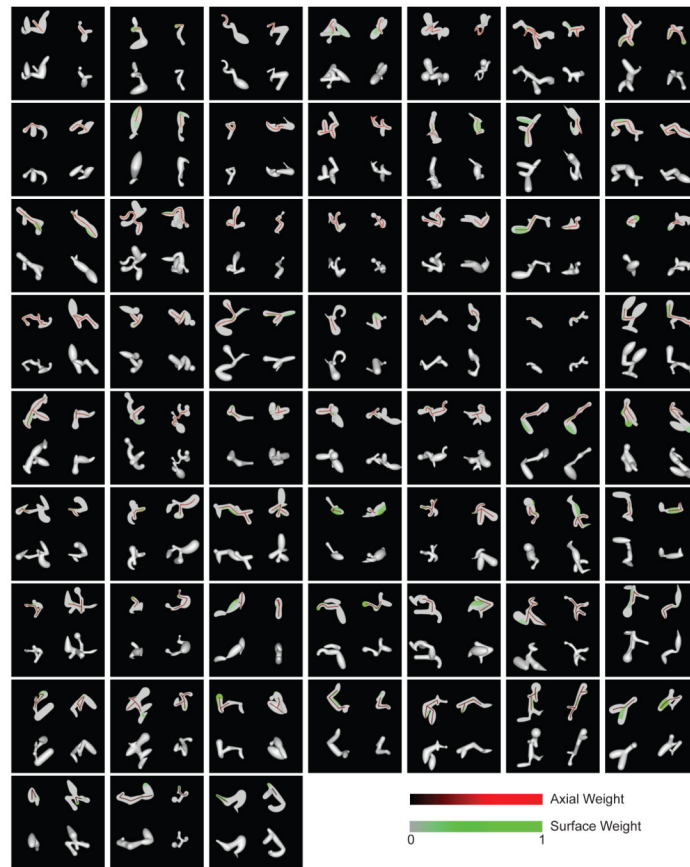 Axial Weight
Surface Weight
0 1